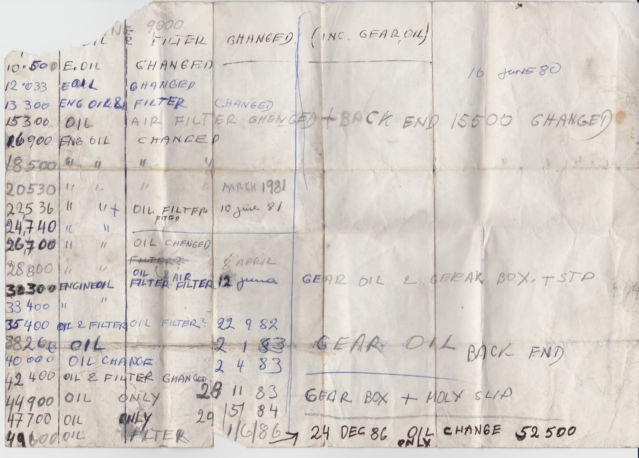 NE 9000
OIL & FILTER CHANGED (INC. GEAR OIL)
10.500 E.OIL CHANGED
16 June 80
12.033 E.OIL CHANGED
13 300 ENG OIL & FILTER CHANGED
15300 OIL AIR FILTER CHENGED + BACK END 15500 CHANGED
16900 ENG OIL CHANGED
18500 " " " "
20530 " " MARCH 1981
22536 " " + OIL FILTER FITED 10 June 81
24,740 " "
26,700 " " OIL CHENGED
28800 " " FILTER & APRIL
30300 ENGINE OIL OIL & AIR FILTER FILTER 12 June GEAR OIL & GEEAR BOX. + STP
33400 " "
35400 OIL & FILTER OIL FILTER 22 9 82
OIL 2 1 83 GEAR OIL BACK END
40 000 OIL CHANGE 2 4 83
42 400 OIL & FILTER CHANGED
44900 OIL ONLY 28 11 83 GEAR BOX + MOLY SLIP
47700 OIL ONLY 29 /5/ 84
49600 OIL FILTER 1/6/86 → 24 DEC 86 OIL ONLY CHANGE 52500